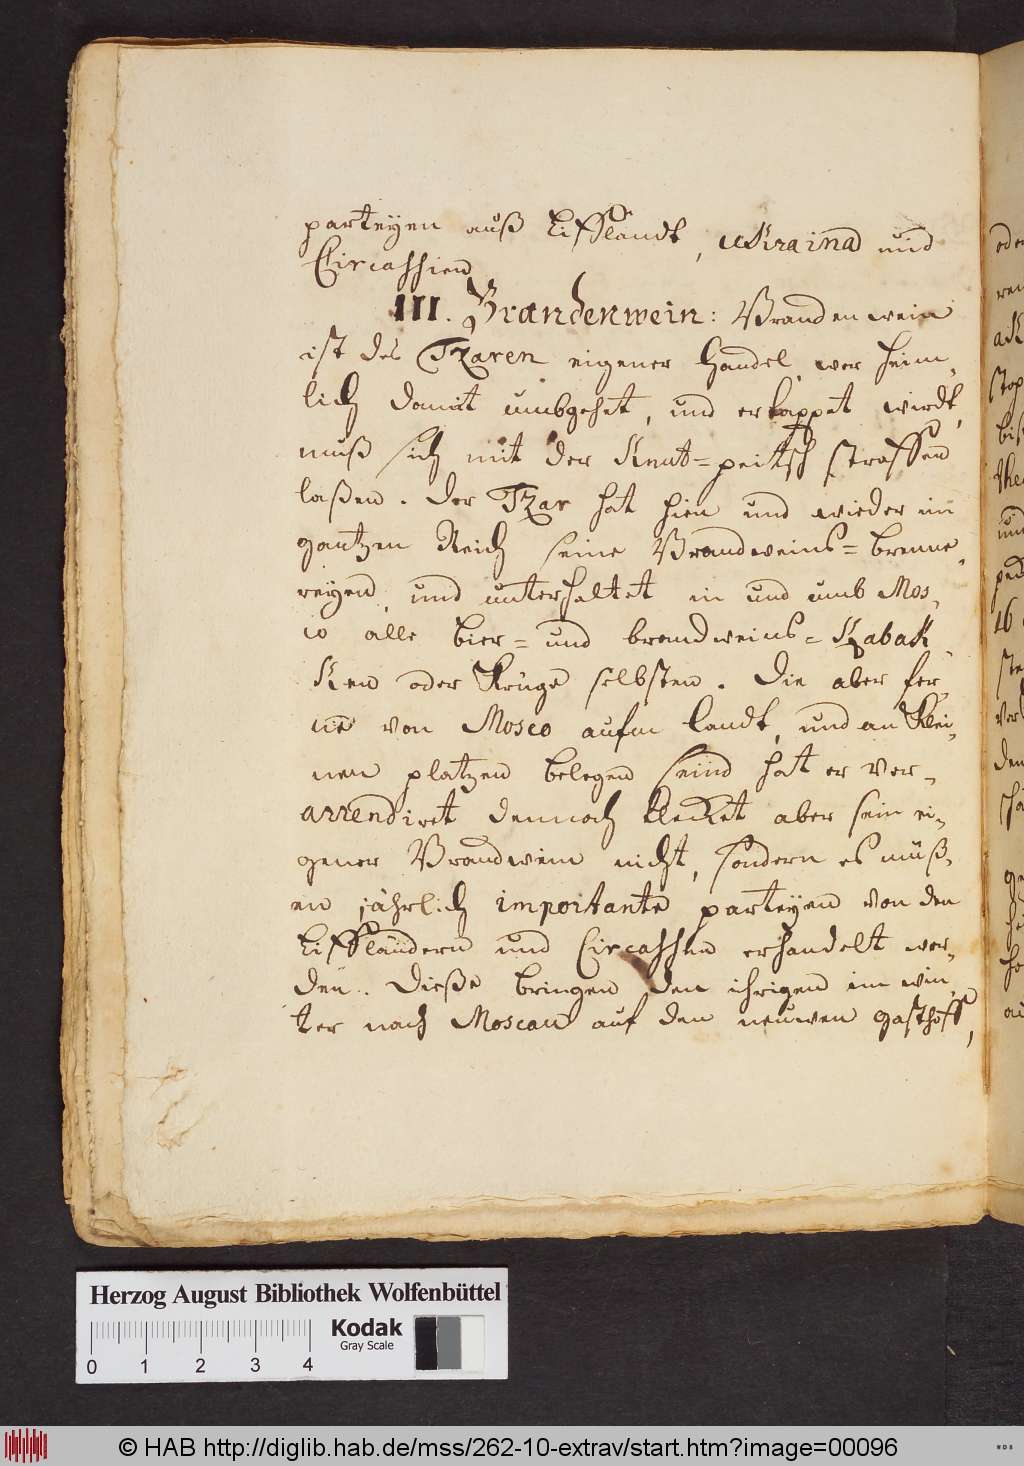 parteyen auß Liffländt, uKraina und
Circassien
III. Brandenwein: Brandenwein
ist des Tzaren eigener Handel, wer heim-
lich damit umbgehet, und ertappet wirdt,
muß sich mit der Knut=peitsch straffen
laßen. Der Tzar hat hien und wieder im
gantzen Reich seine Brandweins=brenne-
reyen, und unterhaltet in und umb Mos-
co alle bier= und brandweins=Kabak-
Ken oder Krüge selbsten. Die aber fer-
ne von Mosco aufm landt, und an Klei-
nen platzen belegen seind hat er ver-
arrendiret dennoch klecket aber sein ei-
gener Brandwein nicht, sondern es müß-
en jährlich importante parteyen von den
Liffländern und Circassen erhandelt wer-
den. Dieße bringen den ihrigen im win-
ter nach Moscau auf den neuwen gasthoff,
oder
stop
bis
und
16
den
Herzog August Bibliothek Wolfenbüttel
Kodak
Gray Scale
0 1 2 3 4
© HAB http://diglib.hab.de/mss/262-10-extrav/start.htm?image=00096